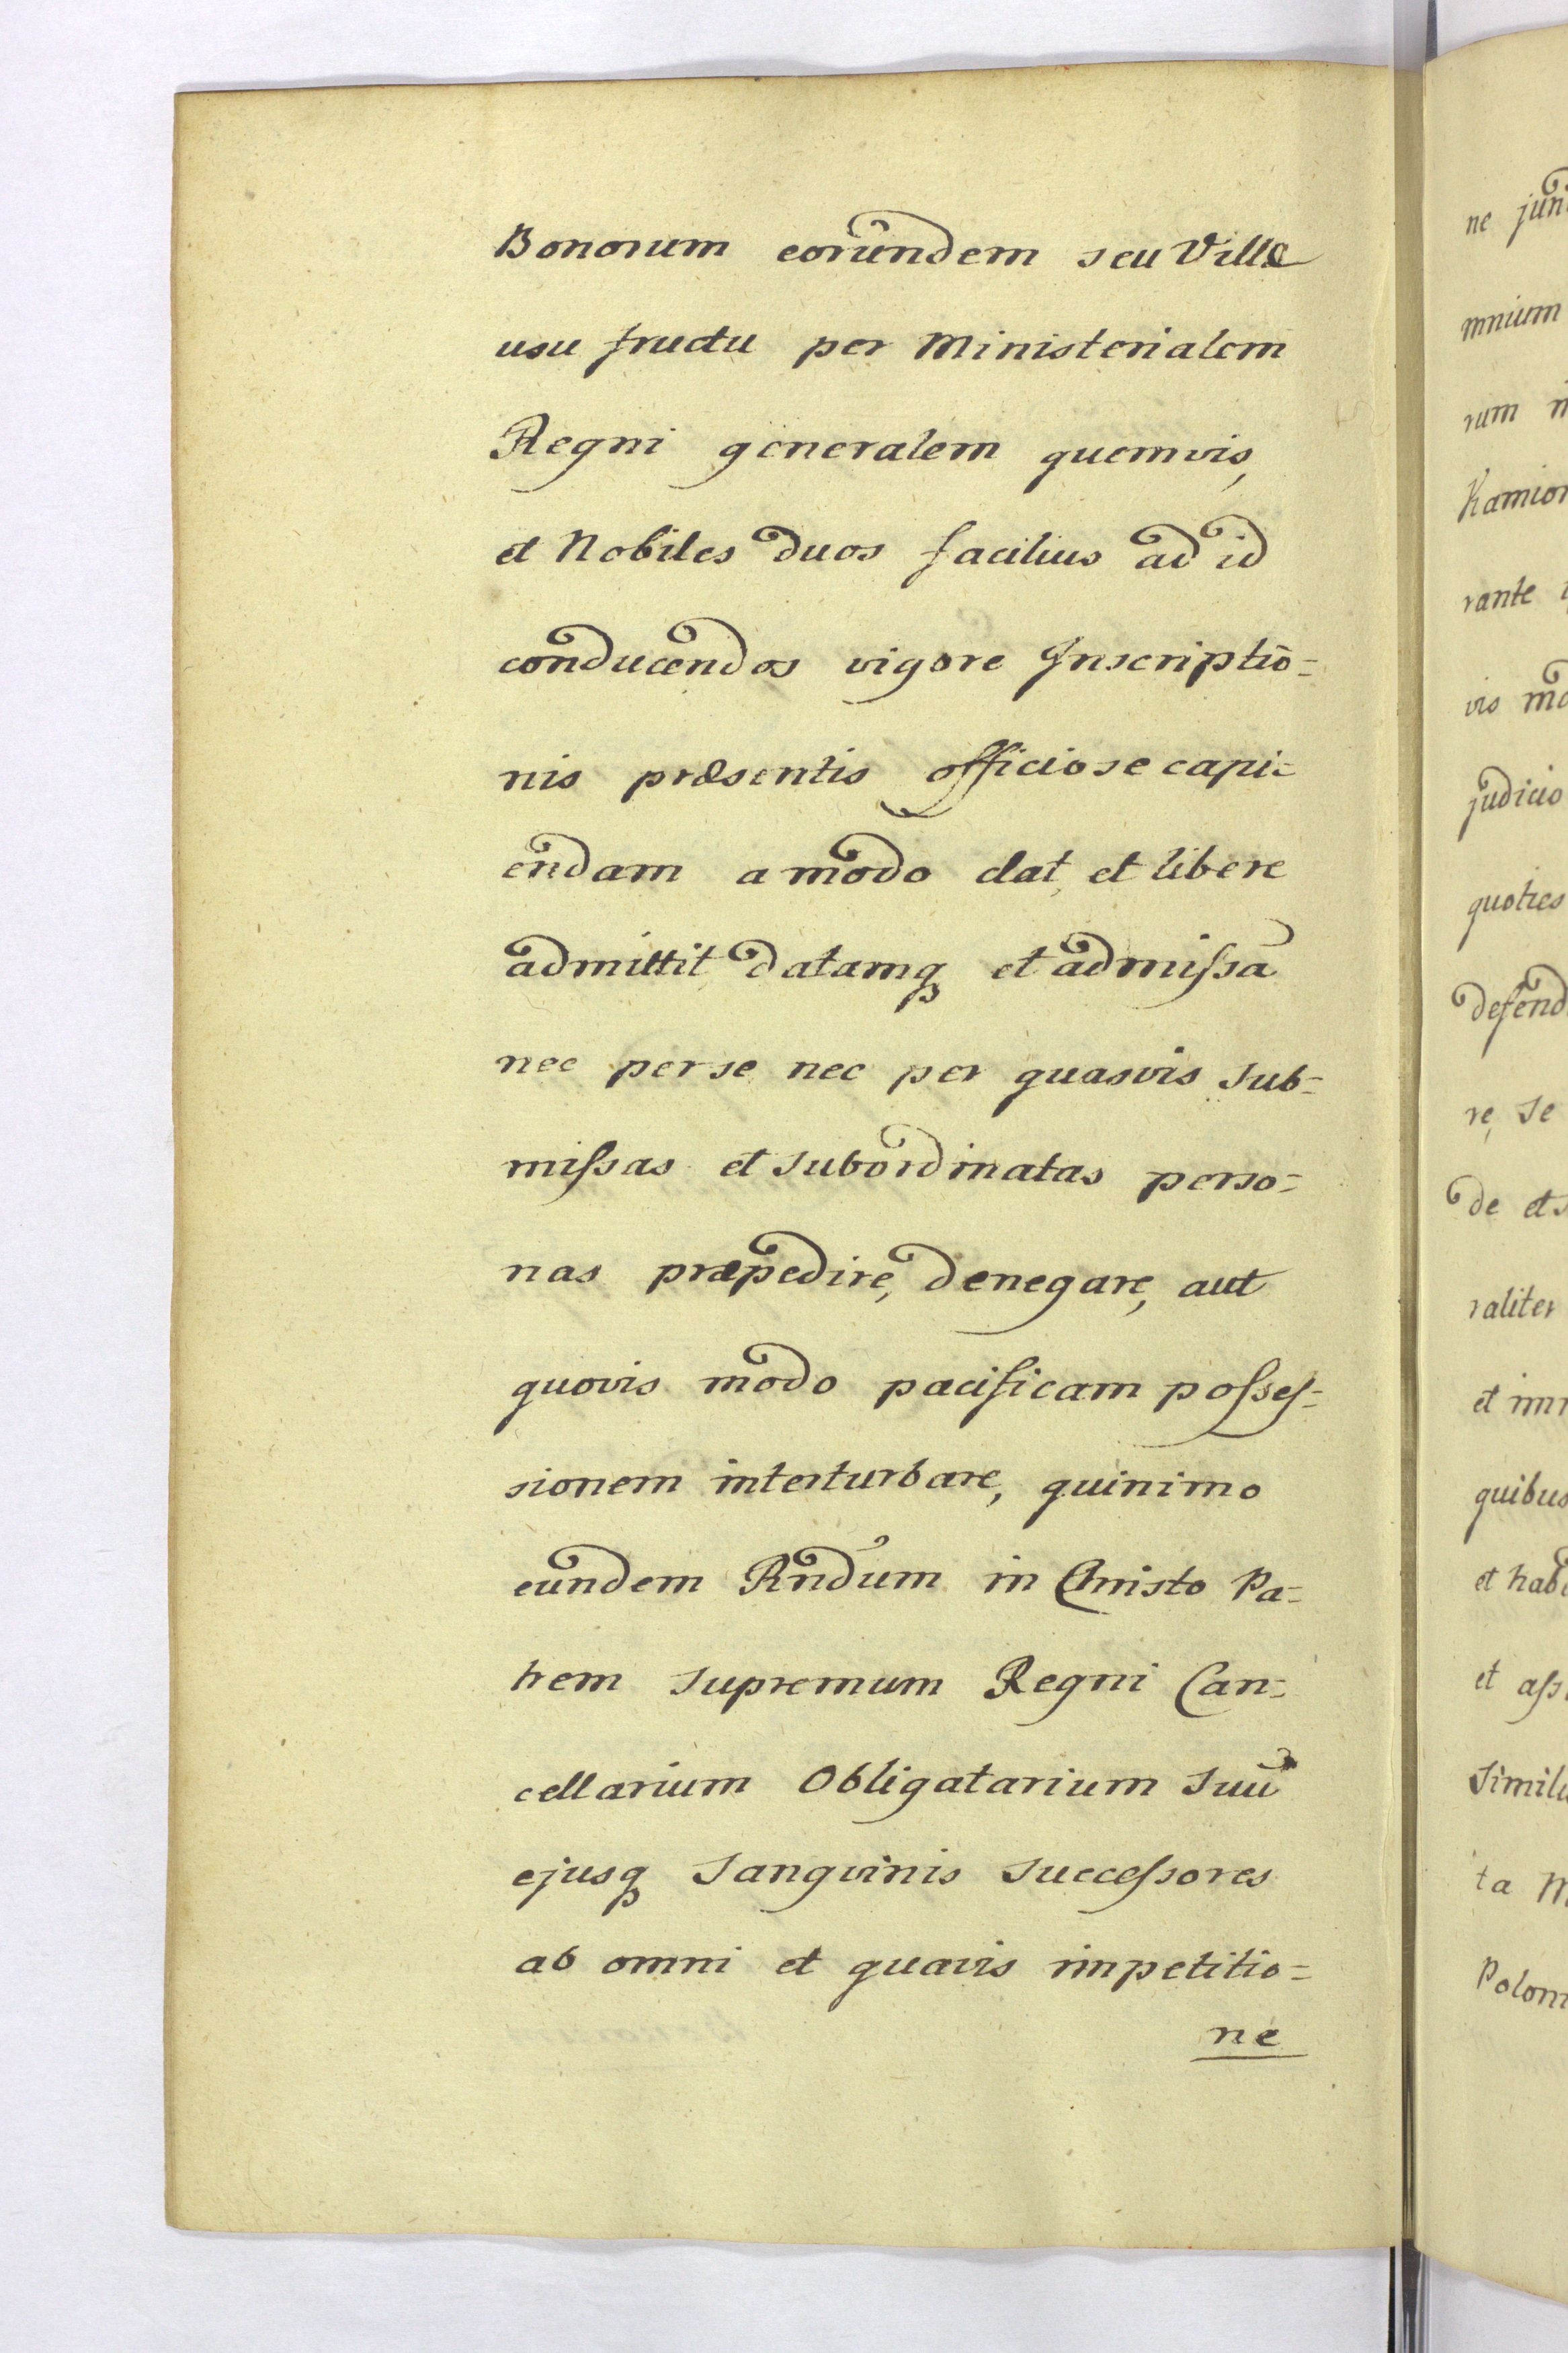 Bonorum eorundem seu Villæ
usu fructu per Ministerialem
Regni generalem quemvis,
et Nobiles duos facilius ad id
conducendos vigore Inscriptio=
nis præsentis officiose capi=
endam a modo dat et libere
admittit datamq; et admissā
nec per se nec per quasvis sub=
missas et subordinatas perso=
nas præpedire, denegare, aut
quovis modo pacificam posses=
sionem interturbare, quinimo
eundem Rndum in Christo Pa=
trem supremum Regni Can=
cellarium Obligatarium suū
ejusq; sangvinis successores
ab omni et quavis impetitio=
ne
ne
mnium
rum
Kamion
rante
vis
judicio
quoties
defend
re, se
de et
raliter
et
quibus
et
et
Simili
ta
Polon